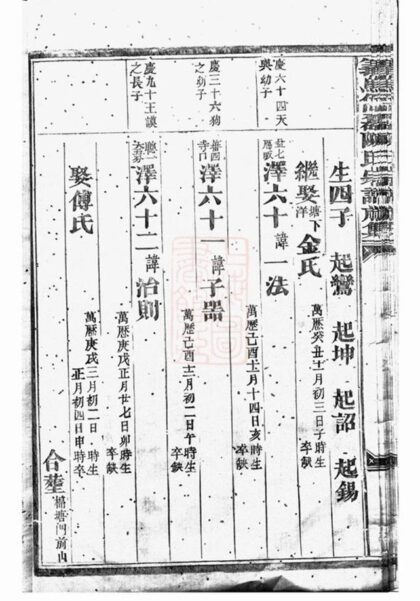 陳氏宗譜
生四子 起鸞 起坤 起詔 起錫
繼娶 塘下洋 金氏 萬歷癸丑十一月初三日子時生 卒缺
慶六十四天與幼子
澤六十 諱一法 萬歷己酉十一月十四日亥時生 卒缺
慶三十六狗之幼子
澤六十一 諱子器 萬歷己酉十二月初二日午時生 卒缺
慶九十王謨之長子
澤六十二 諱治則 萬歷庚戌正月廿七日卯時生 卒缺
娶傅氏 萬歷庚戌三月初二日時生 正月初四日申時卒 合塟 塘門前山